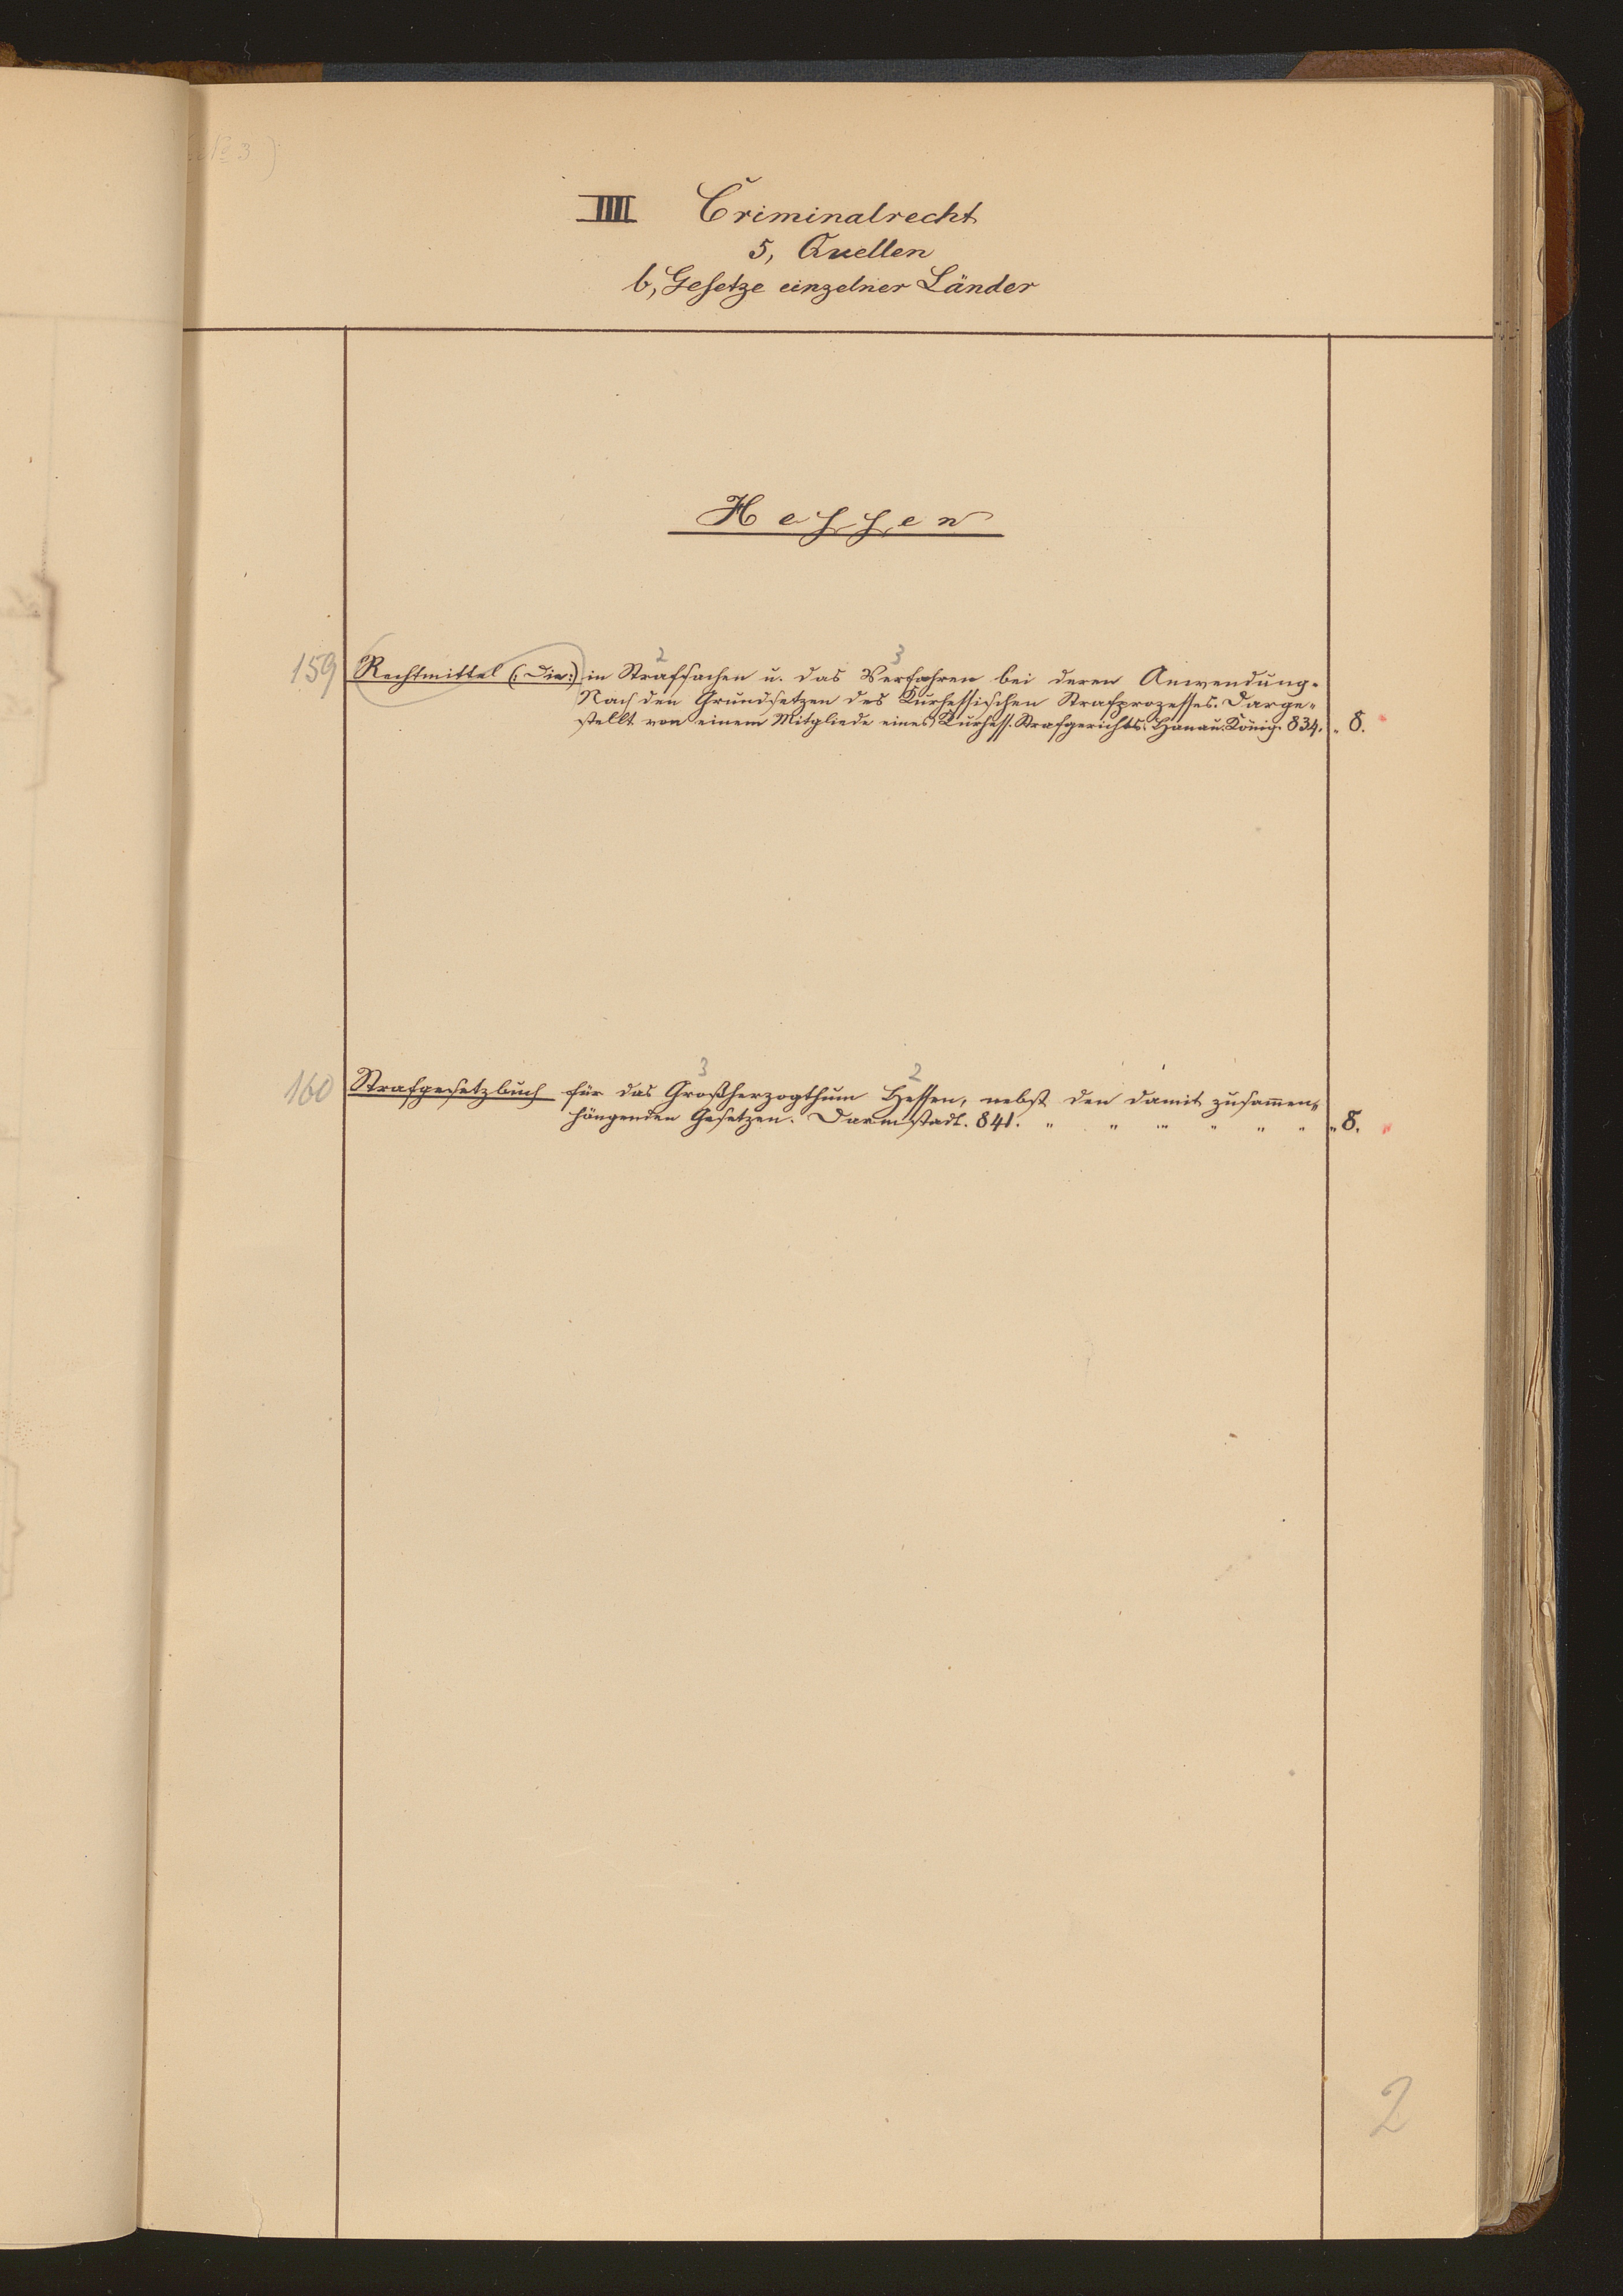 No 3)
IIII Criminalrecht
5, Quellen
b, Gesetze einzelner Länder
Hessen
2 3
159 Rechtmittel (: Die:) in Strafsachen u. das Verfahren bei deren Anwendung.
Nach den Grundsetzen des Kurhessischen Strafprozesses. Darge-
stellt von einem Mitgliede eines Kurhess. Strafgerichts. Hanau. König. 834. „ 8.
3 2
160 Strafgesetzbuch für das Großherzogthum Hessen, nebst den damit zusam̅en-
hängenden Gesetzen. Darmstadt. 841. „ „ „ „ „ „ „ 8.
2